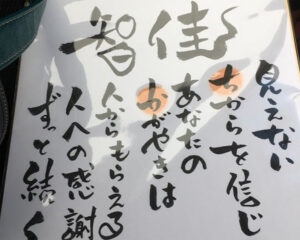 智佳
見えない
ちからを信じ
あなたの
かがやきは
人からもらえる
人への感謝
ずっと続く